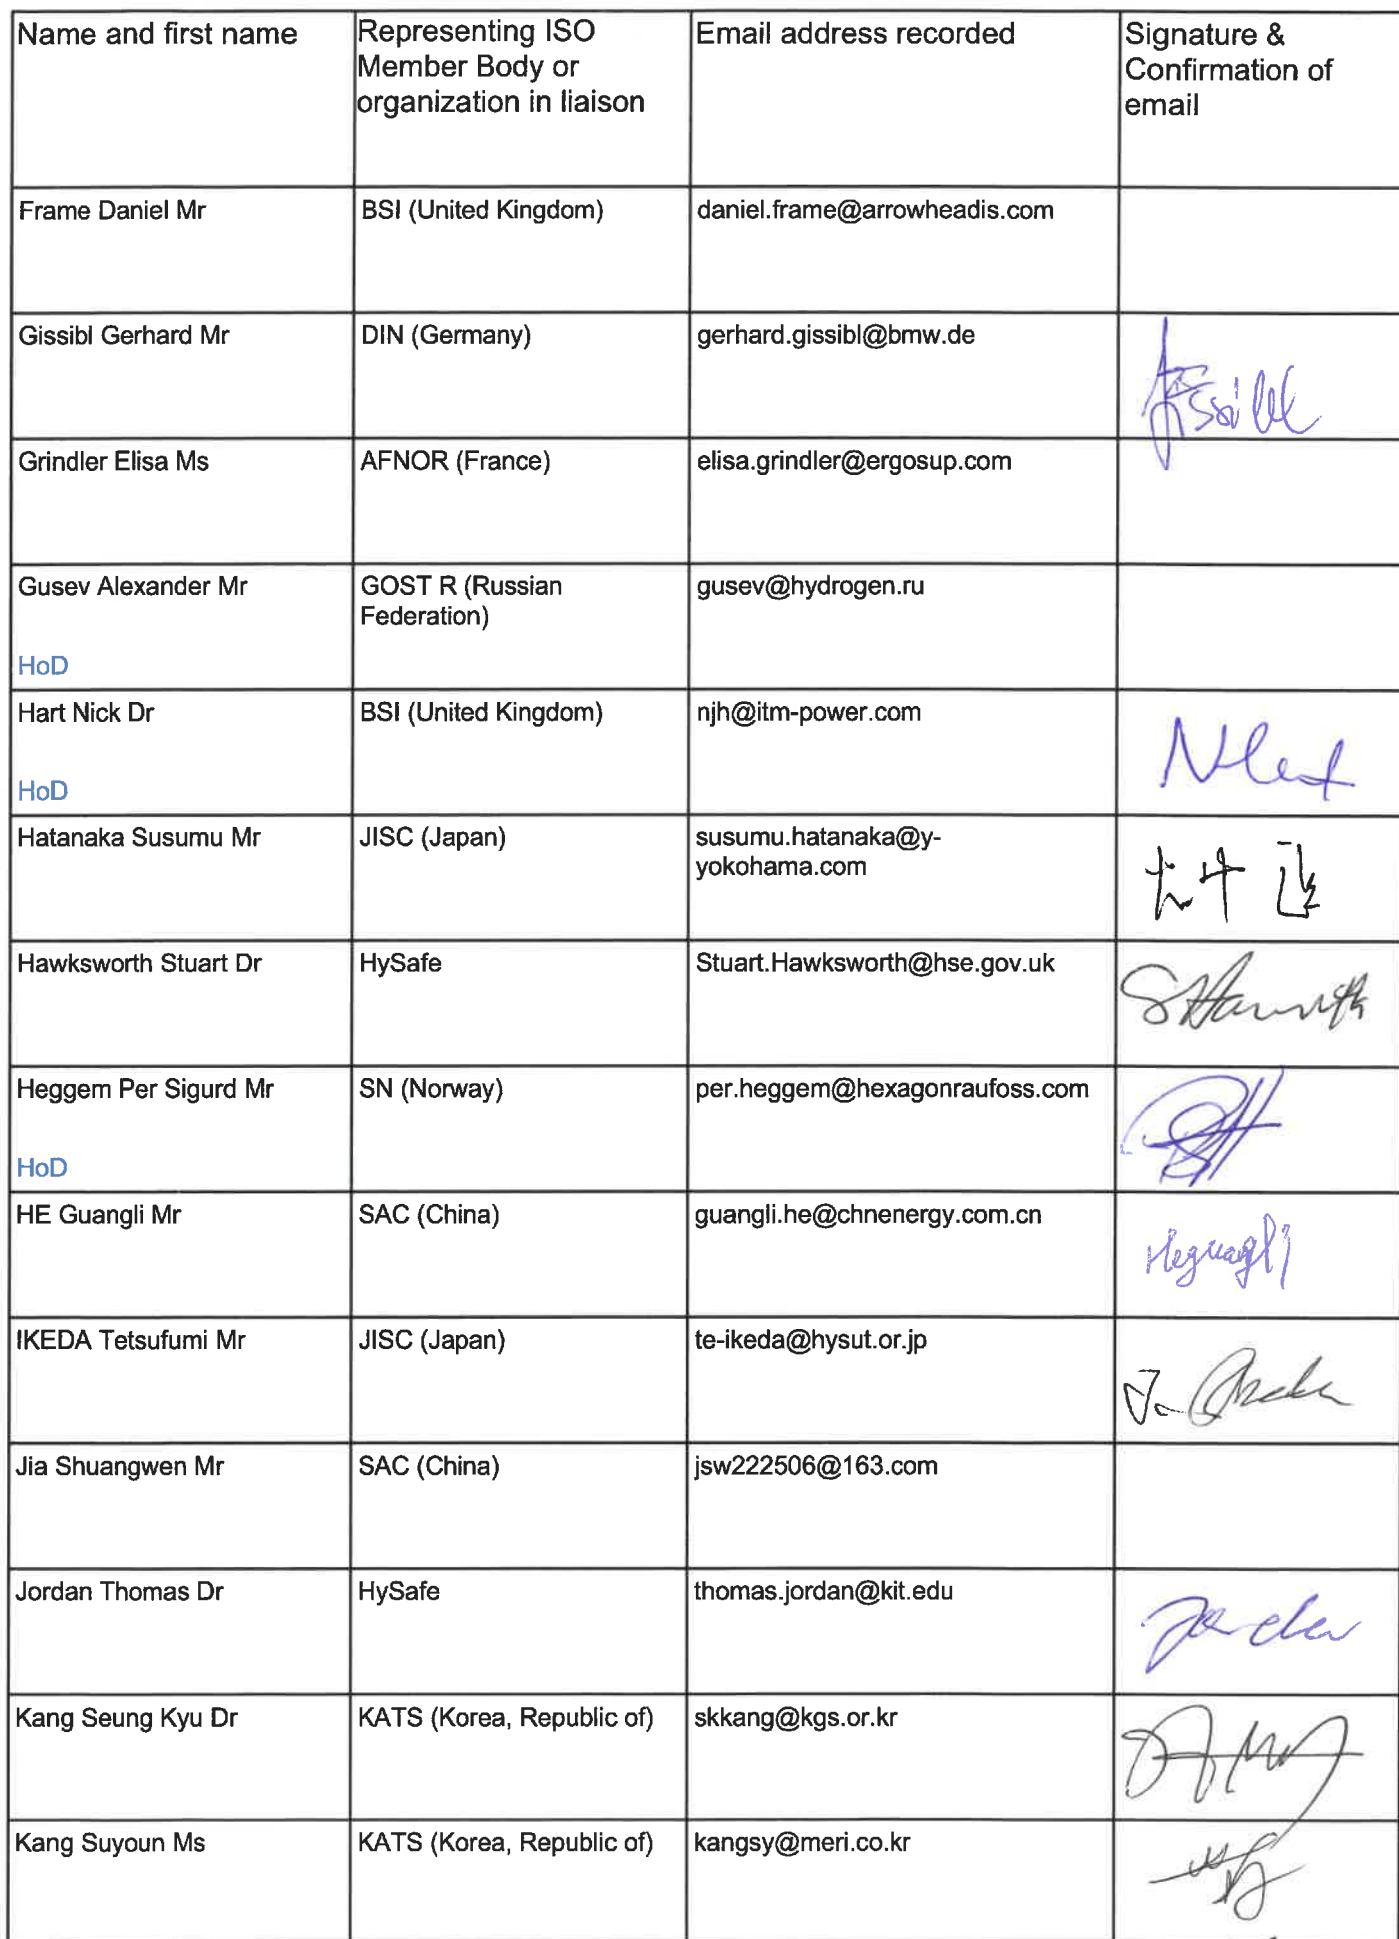 Name and first name
Representing ISO
Member Body or
organization in liaison
Email address recorded
Signature &
Confirmation of
email
Frame Daniel Mr
BSI (United Kingdom)
daniel.frame@arrowheadis.com
Gissibl Gerhard Mr
DIN (Germany)
gerhard.gissibl@bmw.de
Grindler Elisa Ms
AFNOR (France)
elisa.grindler@ergosup.com
Gusev Alexander Mr
HoD
GOST R (Russian
Federation)
gusev@hydrogen.ru
Hart Nick Dr
HoD
BSI (United Kingdom)
njh@itm-power.com
Hatanaka Susumu Mr
JISC (Japan)
susumu.hatanaka@y-
yokohama.com
Hawksworth Stuart Dr
HySafe
Stuart.Hawksworth@hse.gov.uk
Heggem Per Sigurd Mr
HoD
SN (Norway)
per.heggem@hexagonraufoss.com
HE Guangli Mr
SAC (China)
guangli.he@chnenergy.com.cn
IKEDA Tetsufumi Mr
JISC (Japan)
te-ikeda@hysut.or.jp
Jia Shuangwen Mr
SAC (China)
jsw222506@163.com
Jordan Thomas Dr
HySafe
thomas.jordan@kit.edu
Kang Seung Kyu Dr
KATS (Korea, Republic of)
skkang@kgs.or.kr
Kang Suyoun Ms
KATS (Korea, Republic of)
kangsy@meri.co.kr